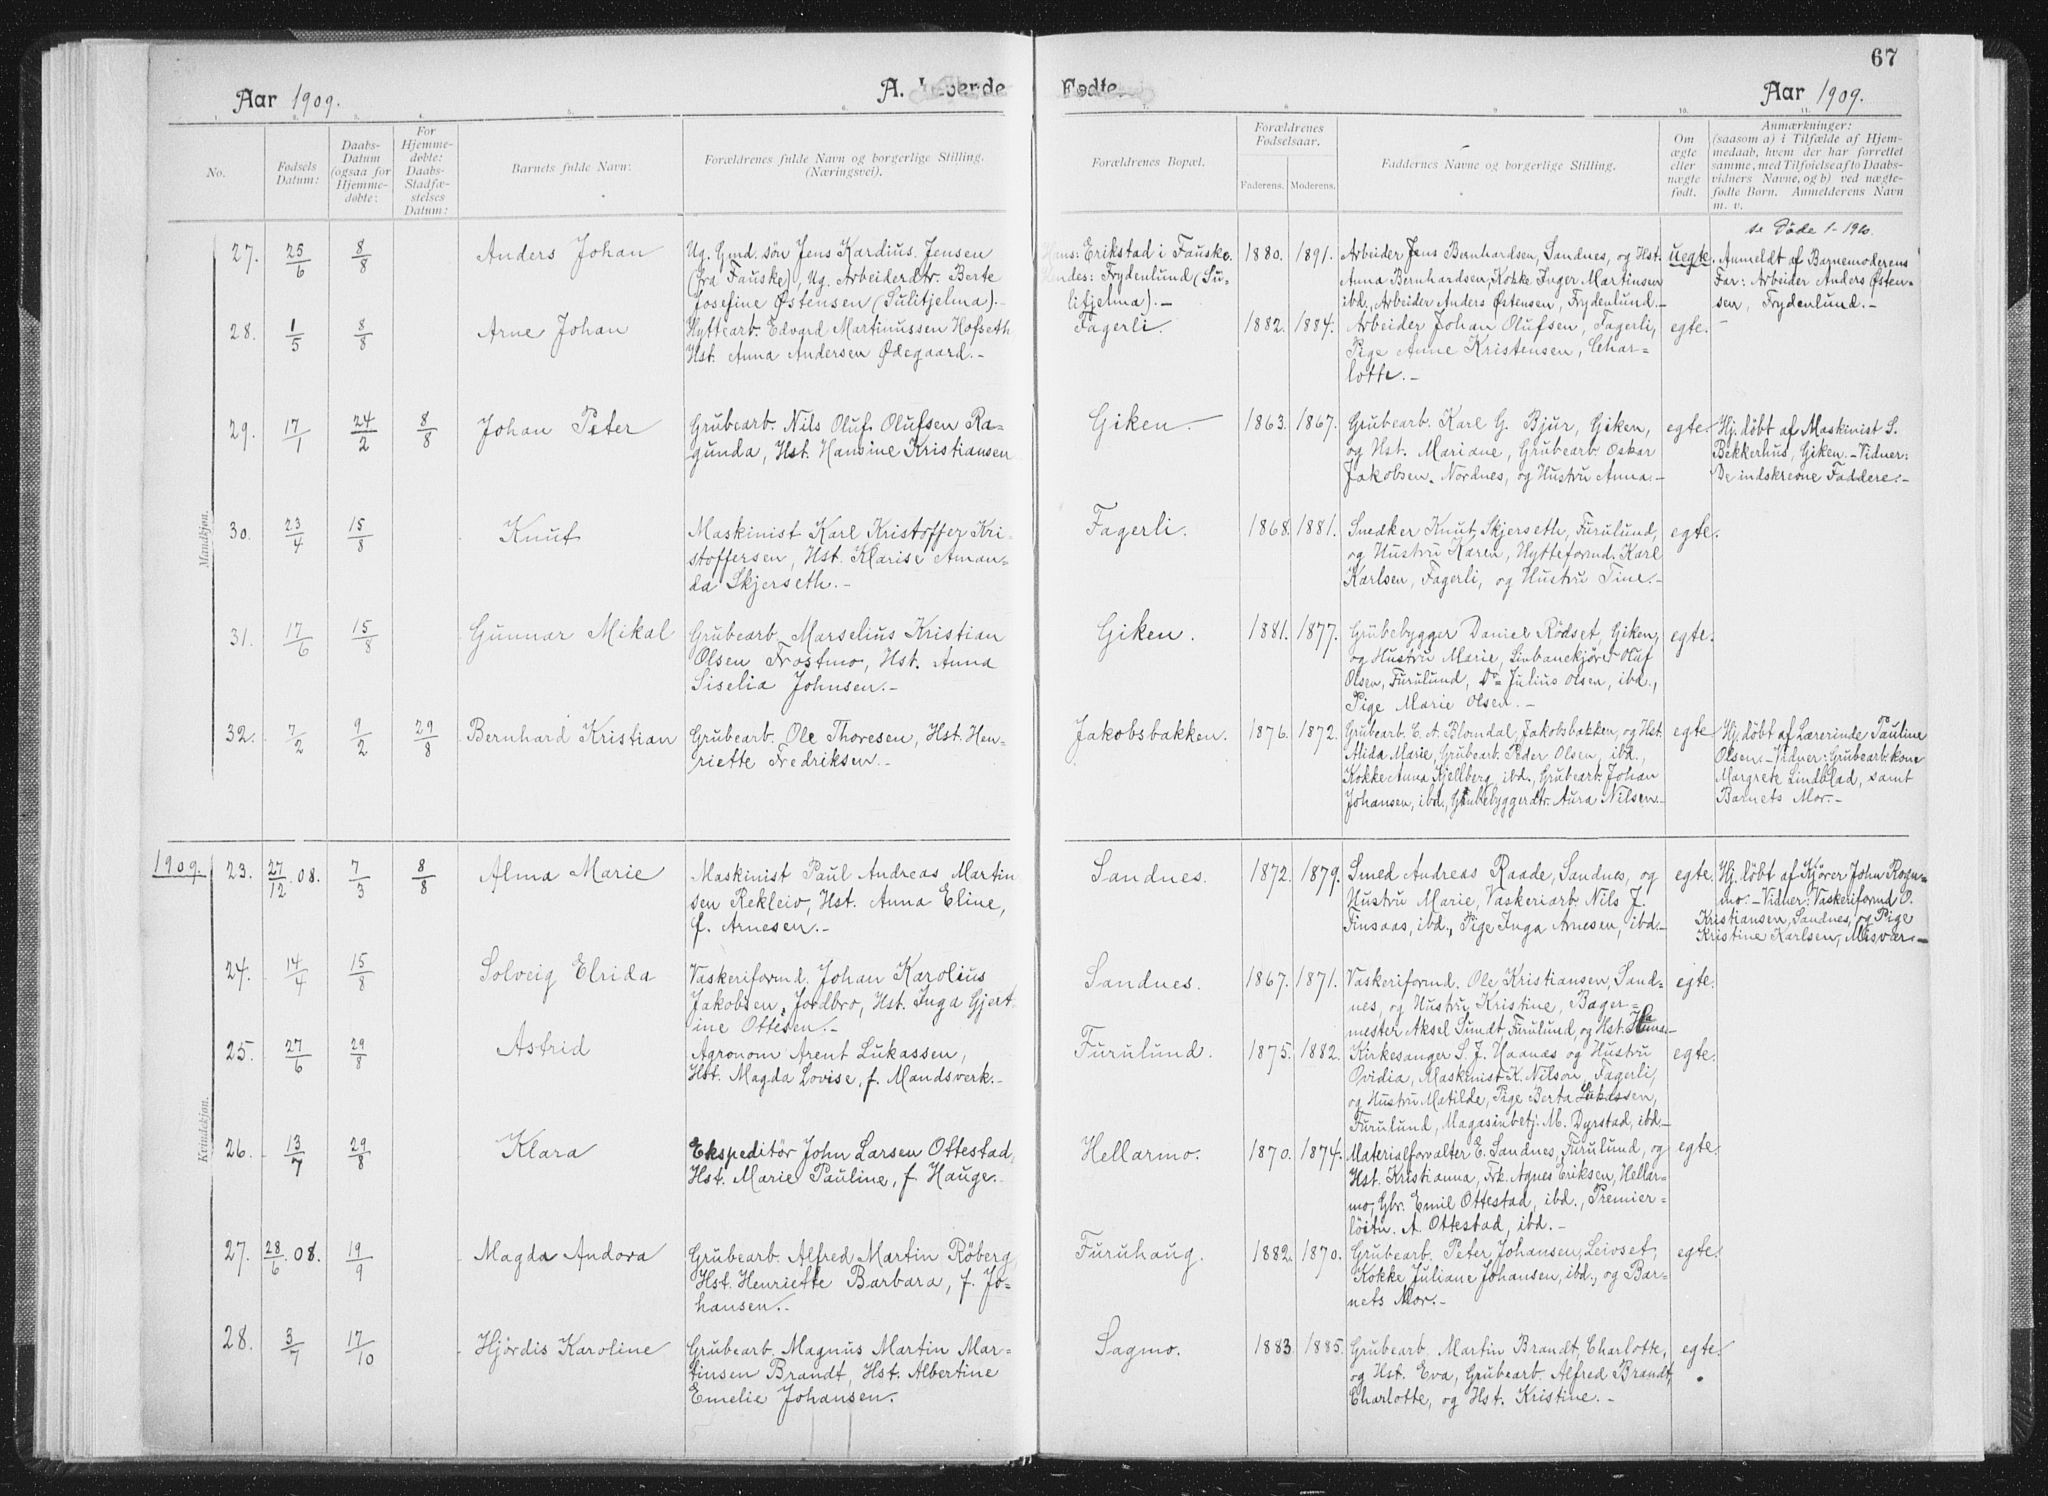 67
Aar 1909.
A. Levende
Fødte
Aar 1909.
1. 2. 3. 4. 5. 6. 7. 8. 9. 10. 11.
No.
Fødsels
Datum:
Daabs-
Datum
(ogsaa for
Hjemme-
døbte:
For
Hjemme-
døbte:
Daabs-
Stadfæ-
stelses
Datum:
Barnets fulde Navn:
Forældrenes fulde Navn og borgerlige Stilling.
(Næringsvei).
Forældrenes Bopæl.
Forældrenes
Fødselsaar.
Faderens. Moderens.
Faddernes Navne og borgerlige Stilling.
Om
ægte
eller
uægte
født.
Anmærkninger:
(saasom a) i Tilfælde af Hjem-
medaab, hvem der har forrettet
samme, med Tilføielse af to Daabs-
vidners Navne, og b) ved uægte-
fødte Børn. Anmelderens Navn
m. v.
Mandkjøn.
27. 25/6 8/8 Anders Johan
Ug. Gmd. søn Jens Kardius Jensen
(fra Fauske), Ug. Arbeiderdtr. Berte
Josefine Østensen (Sulitjelma).-
Hans: Erikstad i Fauske.
Hendes: Frydenlund (Su-
litjelma).-
1880. 1891.
Arbeider Jens Bernhardsen, Sandnes, og Hst.
Anna Bernhardsen, Kokke Inger Martinsen
ibd., Arbeider Anders Østensen, Frydenlund.-
uegte.
se Døde 1-1910.
Anmeldt af Barnemoderens
Far: Arbeider Anders Østen-
sen, Frydenlund.-
28. 1/5 8/8 Arne Johan
Hyttearb. Edvard Martinussen Hofseth,
Hst. Anna Andersen Ødegaard.-
Fagerli.
1882. 1884.
Arbeider Johan Olufsen, Fagerli,
Pige Anne Kristensen, Char-
lotte.-
egte.
29. 17/1 24/2 8/8 Johan Peter
Grubearb. Nils Oluf Olufsen Ra-
gunda, Hst. Hansine Kristiansen
Giken.
1863. 1867.
Grubearb. Karl G. Bjur, Giken,
og Hst. Mariane, Grubearb. Oskar
Jakobsen, Nordnes, og Hustru Anna.-
egte.
Hj. døbt af Maskinist S.
Bekkerhus, Giken.-Vidner:
De indskrevne Faddere.-
30. 23/4 15/8 Knut
Maskinist Karl Kristoffer Kri-
stoffersen, Hst. Klarise Aman-
da Skjerseth.-
Fagerli.
1868. 1881.
Snedker Knut Skjerseth, Furulund,
og Hustru Karen, Hytteformd. Karl
Karlsen, Fagerli, og Hustru Tine.-
egte.
31. 17/6 15/8 Gunnar Mikal
Grubearb. Marselius Kristian
Olsen Frostmo, Hst. Anna
Siselia Johnsen.-
Giken.
1881. 1877.
Grubebygger Daniel Rödset, Giken,
og Hustru Marie, Linbanekjører Oluf
Olsen, Furulund, Do Julius Olsen, ibd.,
Pige Marie Olsen.-
egte.
32. 7/2 9/2 29/8 Bernhard Kristian
Grubearb. Ole Thoresen, Hst. Hen-
riette Fredriksen.-
Jakobsbakken.
1876. 1872.
Grubearb. E. A. Blomdal, Jakobsbakken, og Hst.
Alida Marie, Grubearb. Peder Olsen, ibd.,
Kokke Anna Kjellberg, ibd., Grubearb. Johan
Johansen, ibd., Grubebyggerdtr. Aura Nilsen.-
egte
Hj. døbt af Lærerinde Pauline
Olsen.-Vidner: Grubearb.kone
Margrete Lindblad, samt
Barnets Mor.-
Kvindekjøn.
1909. 23. 27/12.08. 7/3 8/8 Alma Marie
Maskinist Paul Andreas Martin
sen Rekleiv, Hst. Anna Eline,
f. Arnesen.-
Sandnes.
1872. 1879.
Smed Andreas Raade, Sandnes, og
Hustru Marie, Vaskeriarb. Nils J.
Finsaas, ibd., Pige Inga Arnesen, ibd.-
egte.
Hj. døbt af Kjører John Rogn-
mo.-Vidner: Vaskeriformd O.
Kristiansen, Sandnes, og Pige
Kristine Karlsen, Misvær.-
24. 14/4 15/8 Solveig Elrida
Vaskeriformd. Johan Karolius
Jakobsen Jordbro, Hst. Inga Gjert
ine Ottesen.-
Sandnes.
1867. 1871.
Vaskeriformd. Ole Kristiansen, Sand-
nes, og Hustru Kristine, Bager-
mester Aksel Sundt, Furulund, og Hst.
egte.
25. 27/6 29/8 Astrid
Agronom Arent Lukassen,
Hst. Magda Lovise, f. Mandsverk.-
Furulund.
1875. 1882.
Kirkesanger S. J. Haanæs og Hustru
Ovidia, Maskinist K. Nilson, Fagerli,
og Hustru Matilde, Pige Berta Lukassen,
Furulund, Magasinbetj. M. Dyrstad, ibd.-
egte.
26. 13/7 29/8 Klara
Ekspeditör John Larsen Ottestad,
Hst. Marie Pauline, f. Hauge.-
Hellarmo.
1870. 1874.
Materialforvalter E. Sandnes, Furulund, og
Hst. Kristianna, Frk. Agnes Eriksen, Hellar-
mo, Gbr. Emil Ottestad, ibd., Premier-
löitn. A. Ottestad, ibd.-
egte.
27. 28/6.08. 19/9 Magda Andora
Grubearb. Alfred Martin Röberg,
Hst. Henriette Barbara, f. Jo-
hansen.-
Furuhaug.
1882. 1870.
Grubearb. Peter Johansen, Leivset,
Kokke Juliane Johansen, ibd., og Bar-
nets Mor.-
egte.
28. 3/7 17/10 Hjördis Karoline
Grubearb. Magnus Martin Mar-
tinsen Brandt, Hst. Albertine
Emelie Johansen.
Sagmo.
1883 1885.
Grubearb. Martin Brandt, Charlotte,
og Hst. Eva, Grubearb. Alfred Brandt,
Charlotte, og Hst. Kristine.-
egte.